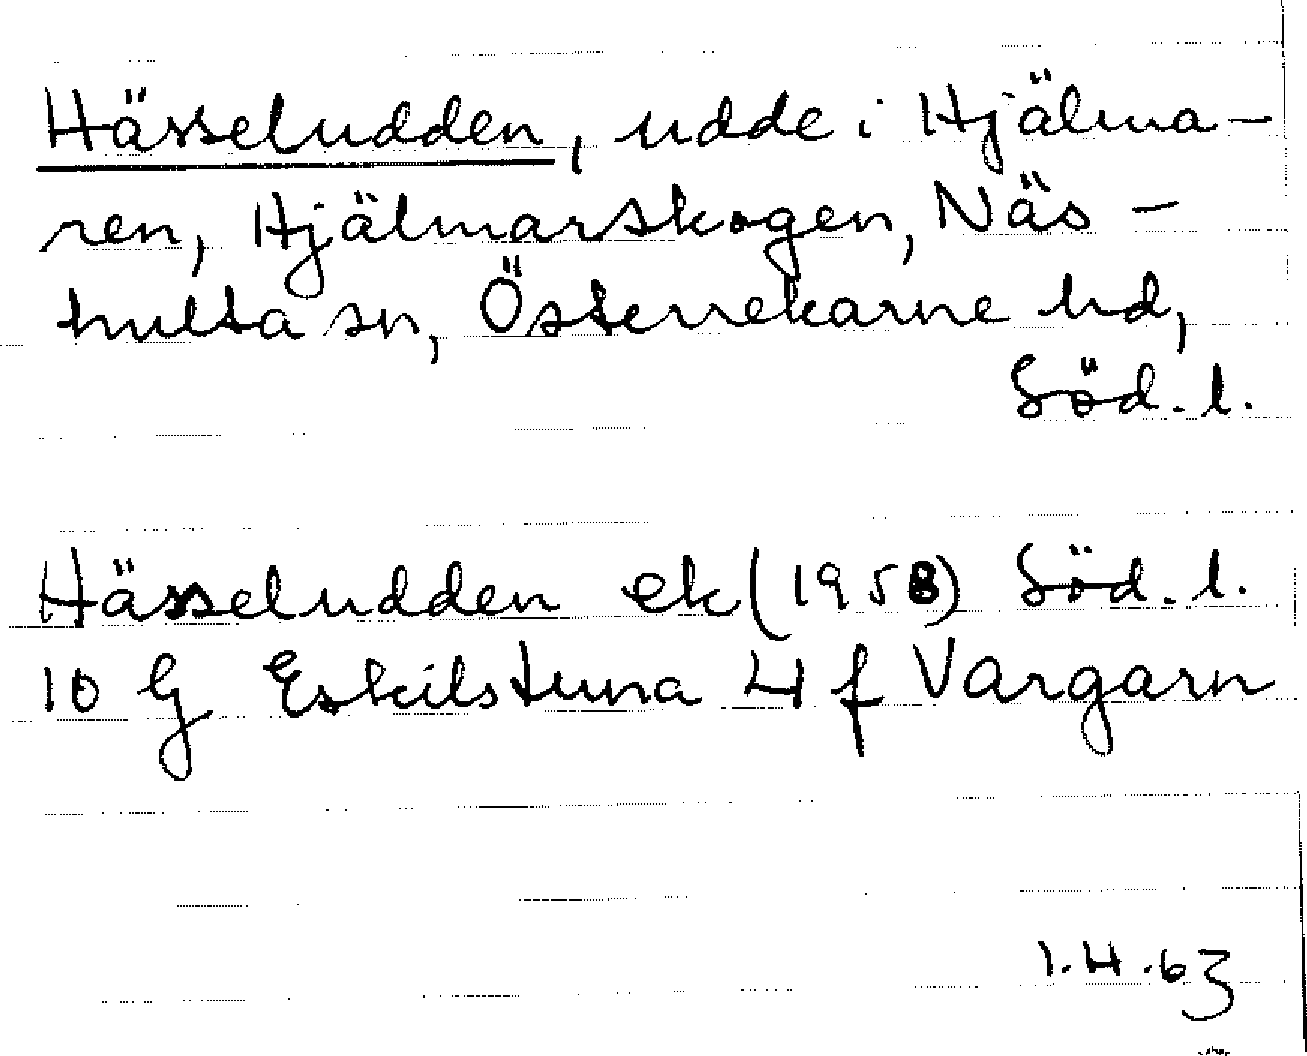 Hässeludden, udde i Hjälma-
ren, Hjälmarskogen, Näs-
hulta sn, Österrekarne hd,
Söd. l.
Hässeludden ek (1958) Söd. l.
10 G Eskilstuna 4 f Vargarn
1.4.63